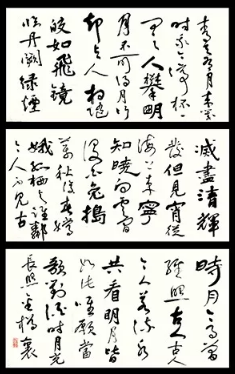 青天有月來幾
時我今停杯一
問之人攀明
月不可得月行
卻與人相隨
皎如飛鏡
臨丹闕綠煙
滅盡清輝
發但見宵從
海上來寧
知曉向雲間
沒白兔搗
藥秋復春嫦
娥孤栖與誰鄰
今人不見古
時月今月曾
經照古人古人
今人若流水
共看明月皆
如此唯願當
歌對酒時月光
長照金樽裏